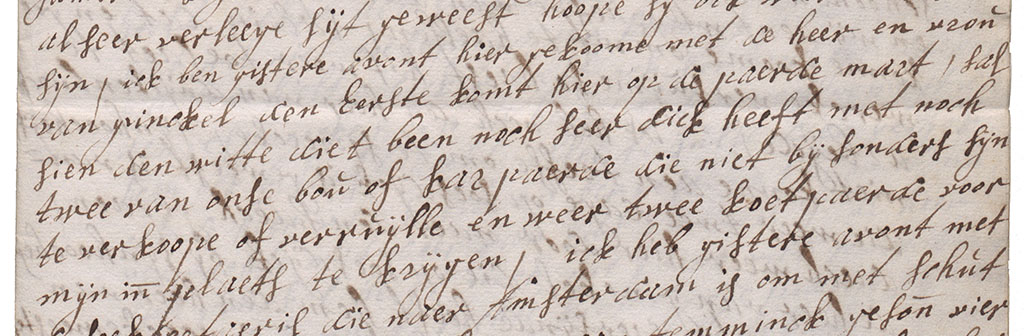 al seer verleege sijt geweest hoope sij
sijn / ick ben gistere avont hier gekoome met de heer en vroŭ
van ginckel den Eerste komt hier op de paerde mart / sal
sien den witte diet been noch seer dick heeft met noch
twee van onse boŭ of kar paerde die niet bijsonders sijn
te verkoope of verruijlle en weer twee koetpaerde voor
mijn in plaets te krijgen / ick heb gistere avont met
die naer Amsterdam is om met schut
temminck vier